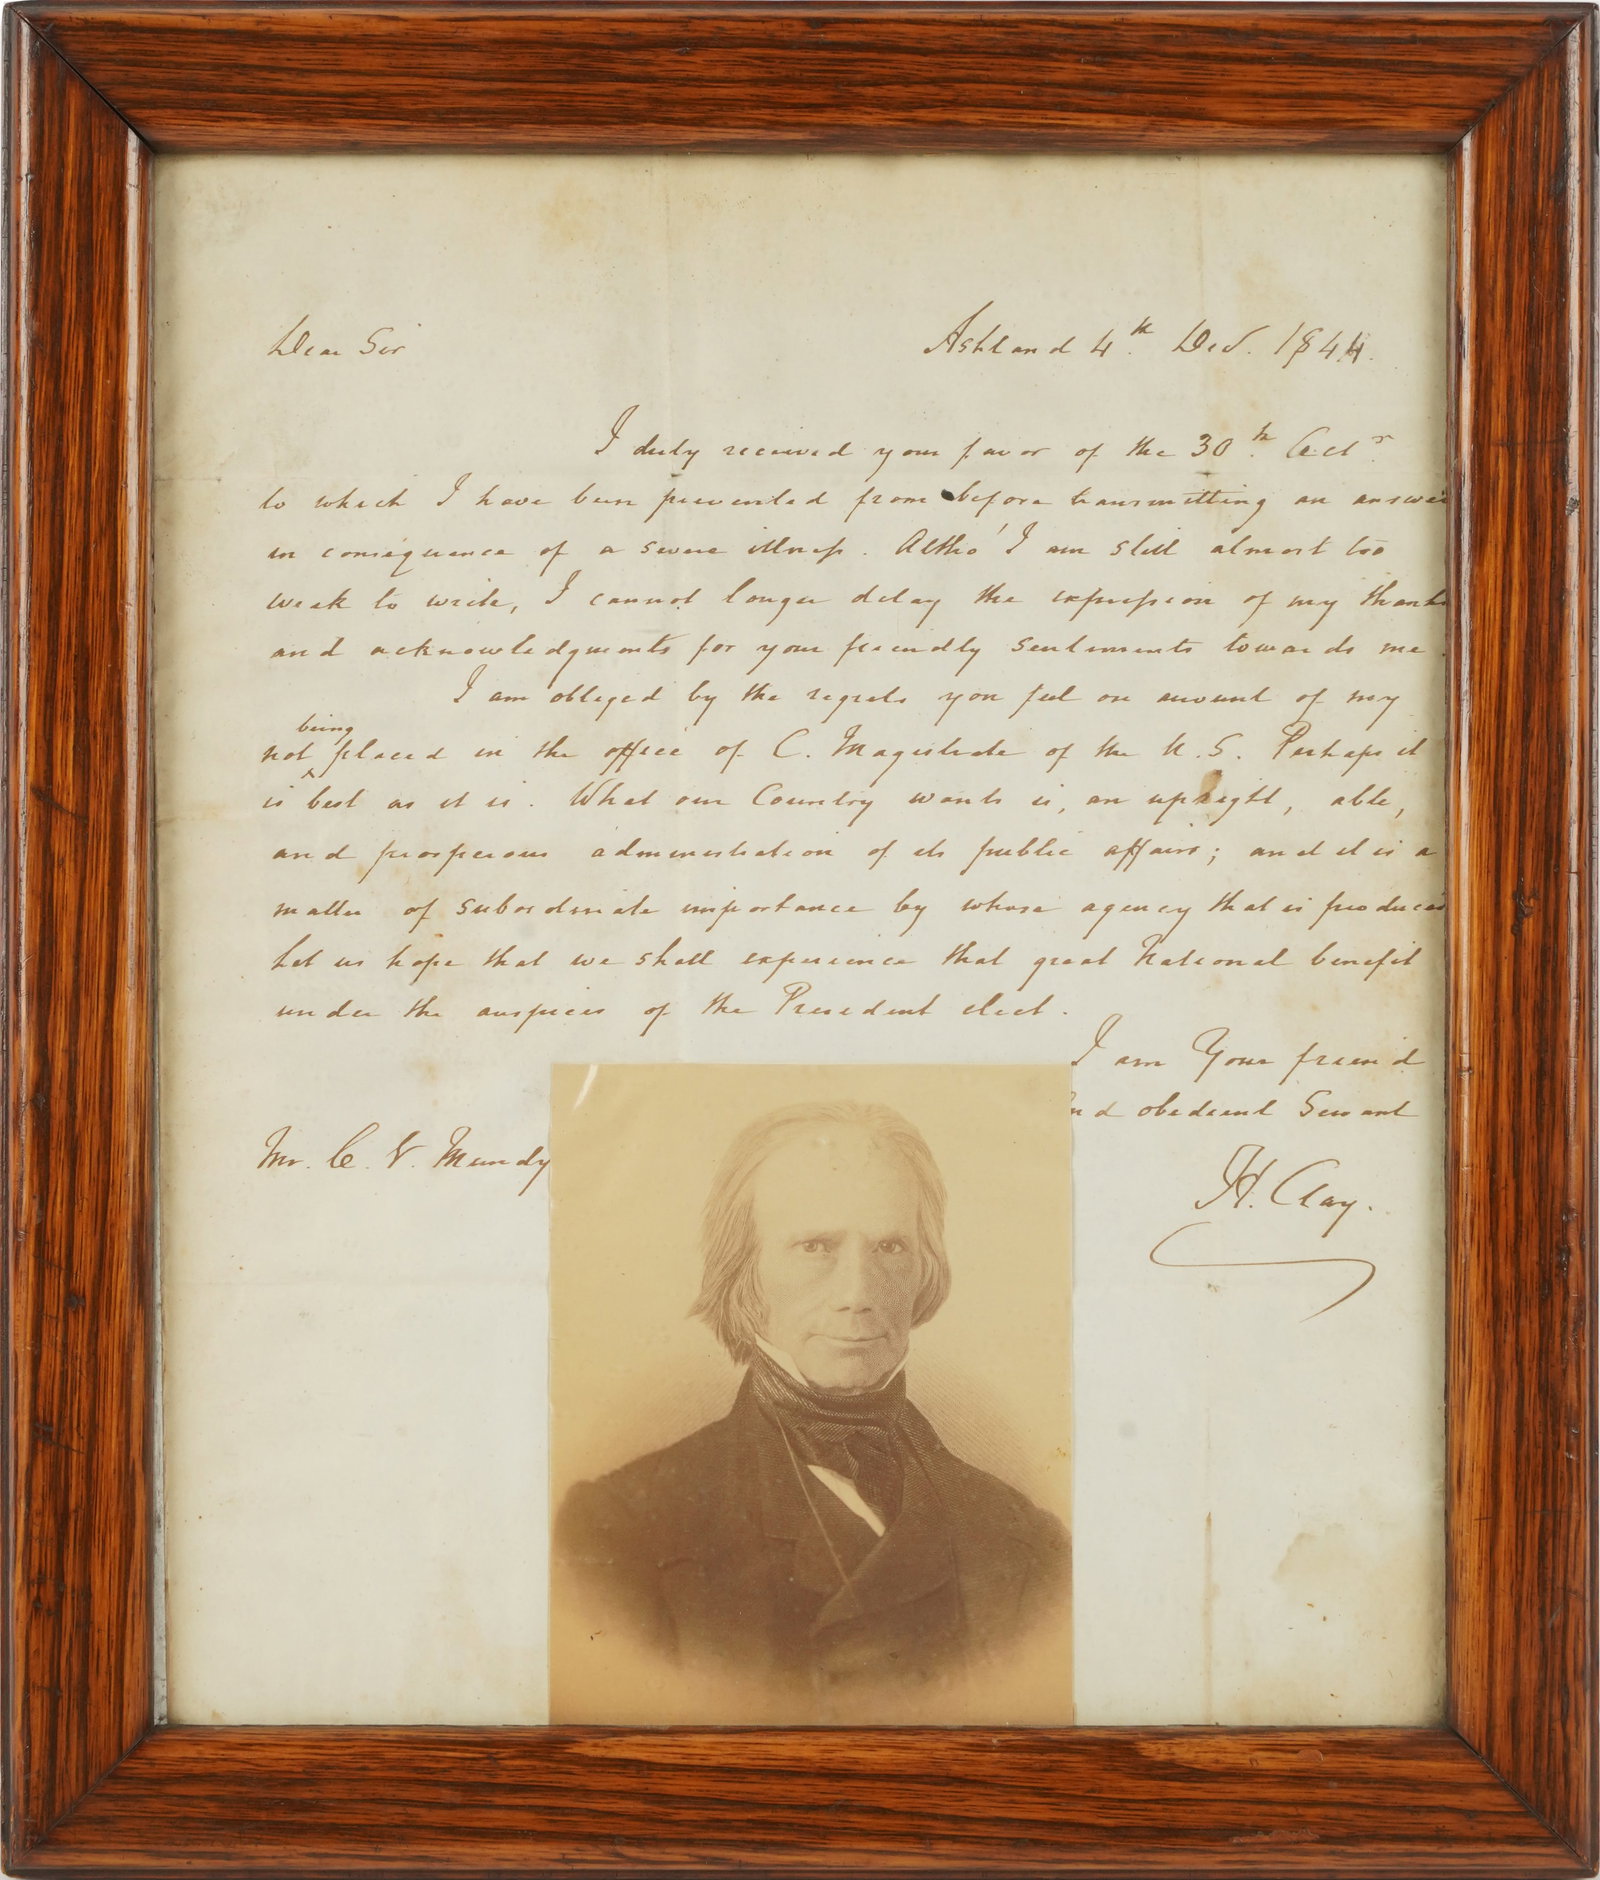 Dear Sir
Ashland 4th. Dec. 1844.
I duly received your favor of the 30th. Octr.
to which I have been prevented from before transmitting an answer
in consequence of a severe illness. Altho' I am still almost too
weak to write, I cannot longer delay the expression of my thanks
and acknowledgments for your friendly sentiments towards me
I am obliged by the regrets you feel on account of my
not being placed in the office of C. Magistrate of the U.S. Perhaps it
is best as it is. What our Country wants is, an upright, able,
and prosperous administration of its public affairs; and it is a
matter of subordinate importance by whose agency that is produced
Let us hope that we shall experience that great National benefit
under the auspices of the President elect.
I am Your friend
and obedient Servant
Mr. C. V. Mundy
H. Clay.